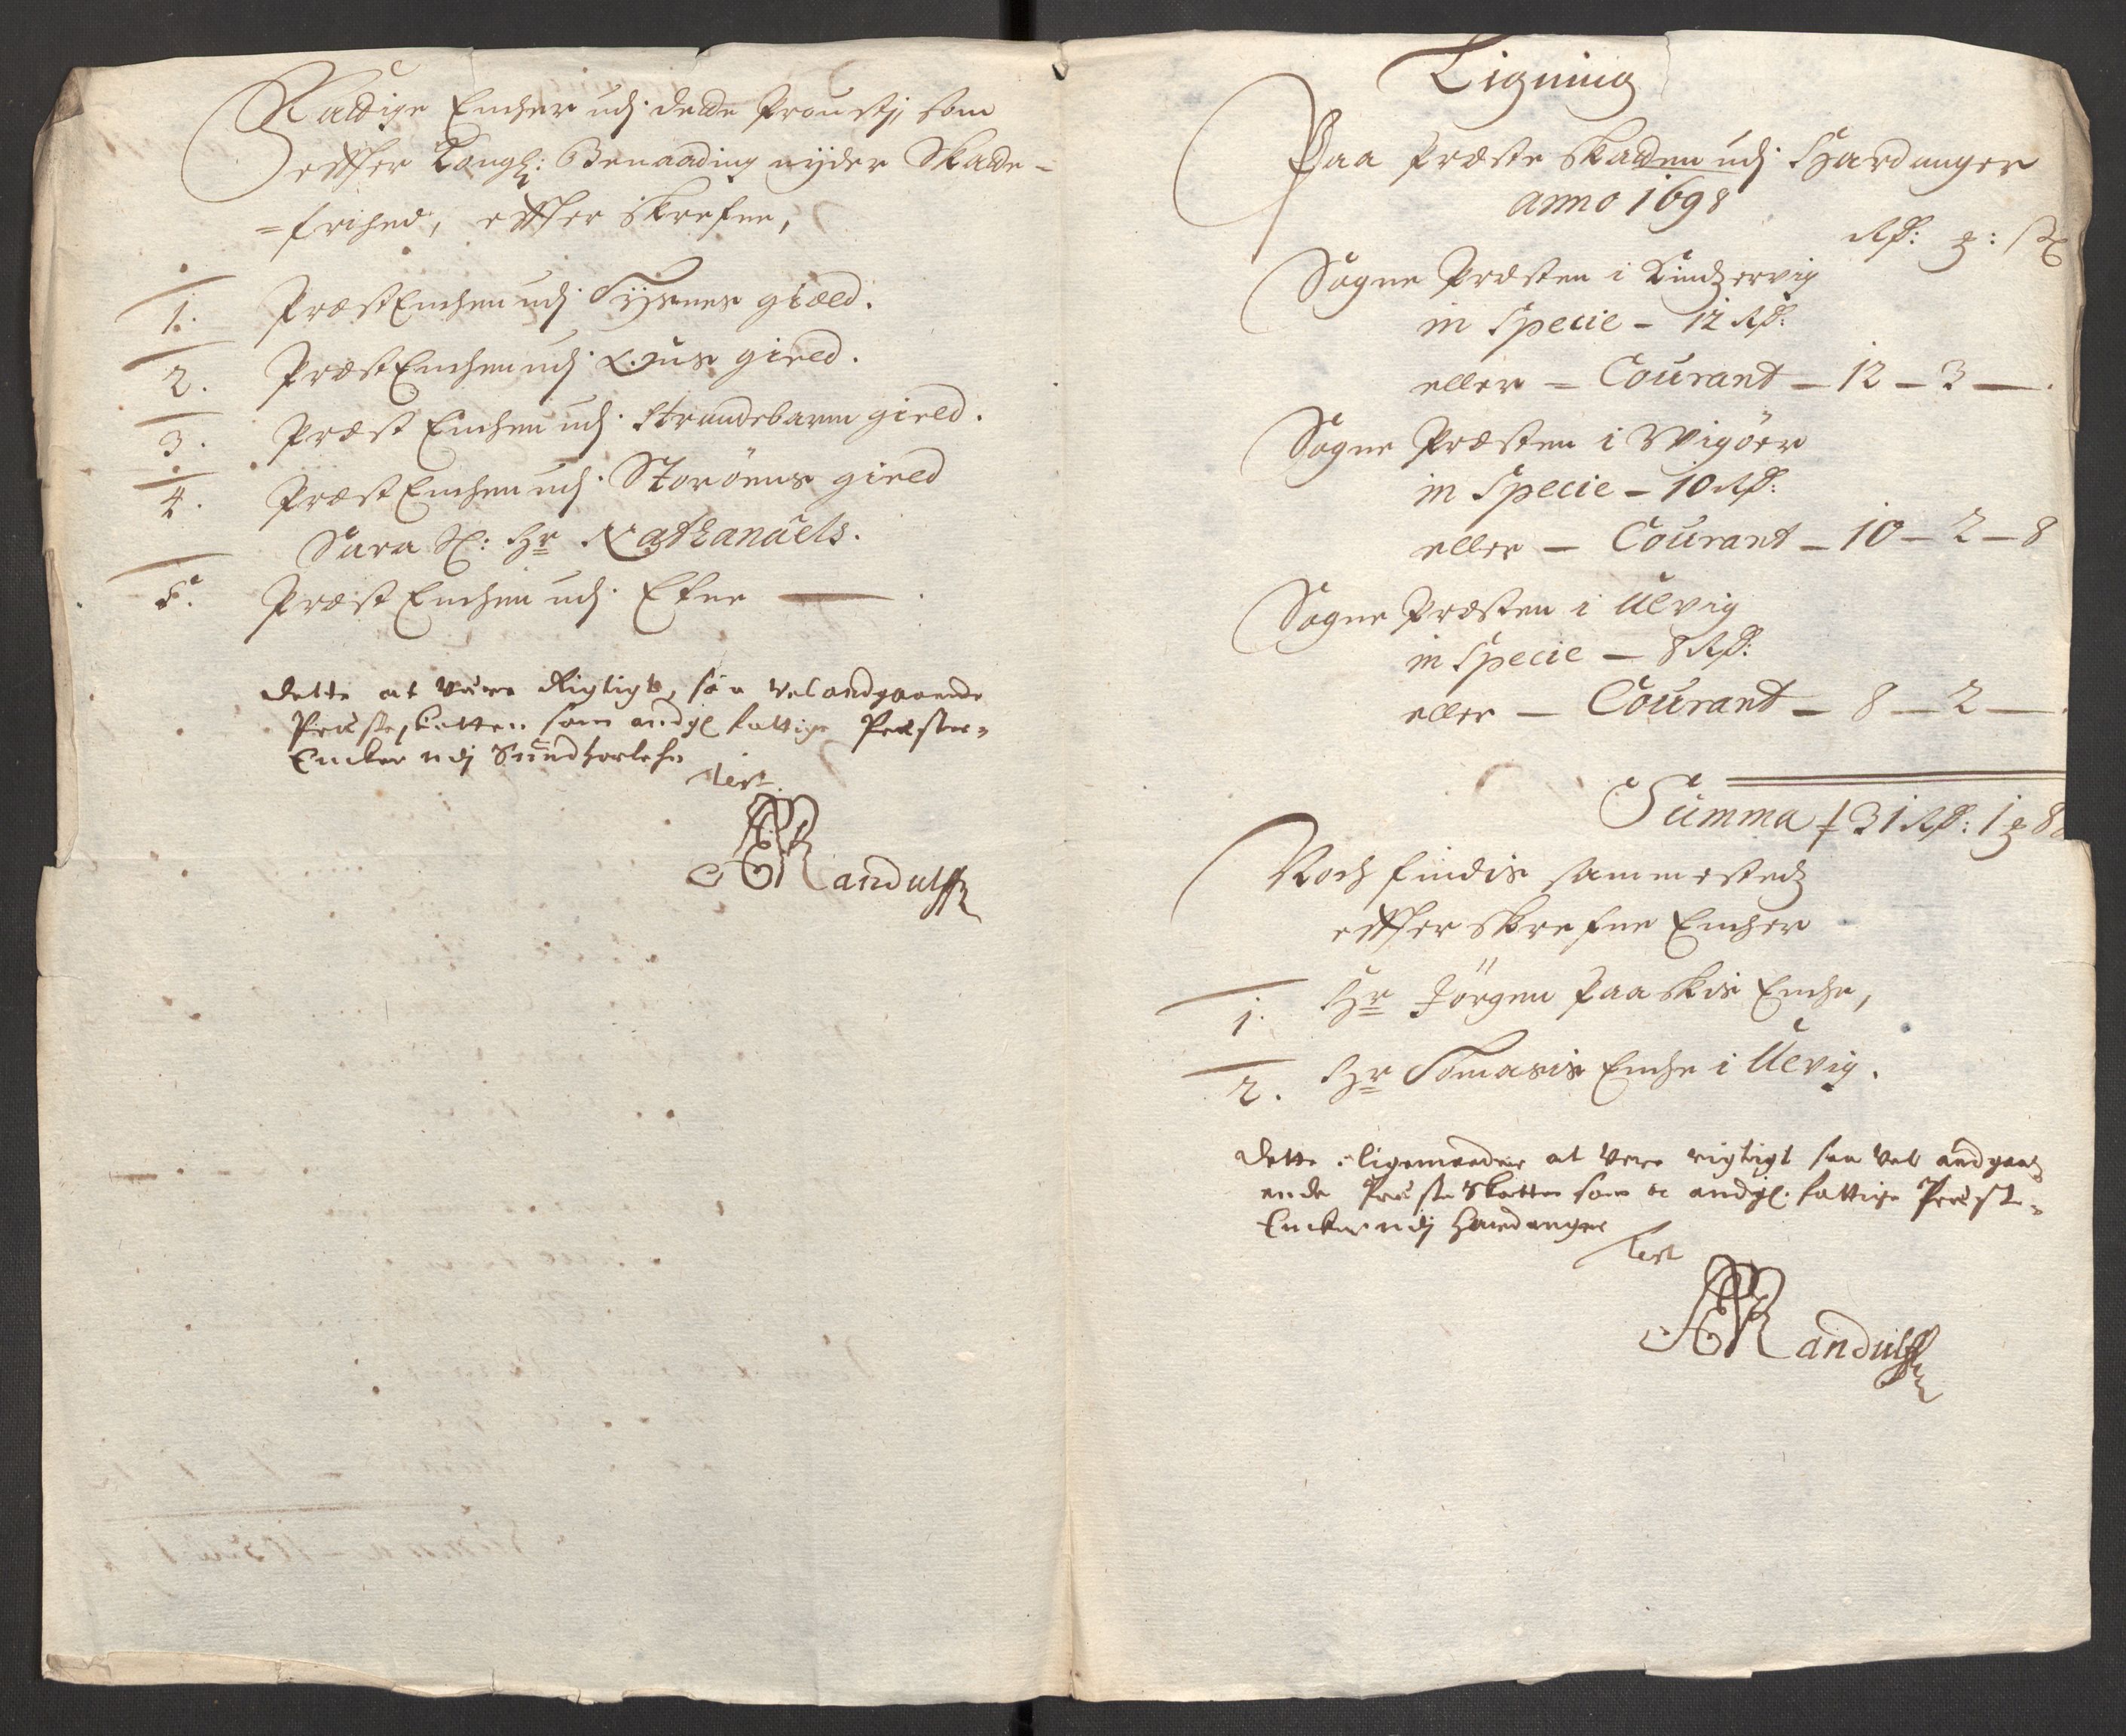 Fattige Encher udj dette Proustj, som
effter Kongl: Benaading nyder Skatte-
=frihed, effter skrefne,
1. Præst Enchen udj Tysnes gield.
2. Præst Enchen udj Ous gield.
3. Præst Enchen udj Strandebarm gield.
4. Præst Enchen udj Storöens gield
Sara Sl: Hr Nathanaels.
5. Præst Enchen udj Etne —
Dette at være Rigtigt, saa vel andgaaende
Præsteskatten som andgl fattige Præste=
Encker udj Sundhorlehn
Test
Randulff
Ligning
Paa Præste Skatten udj Hardanger
anno 1698
Rd: : s
Sogne Præsten i Kindzervig
in Specie - 12 Rd:
eller - Courant - 12 - 3 -
Sogne Præsten i Wigöer
in Specie - 10 Rd:
eller - Courant - 10 - 2 - 8
Sogne Præsten i Ulvig
in Specie - 8 Rd:
eller - Courant - 8 - 2 -
Summa 31 Rd: 1 8
Noch findis sammestedz
effter skrefne Encher
1. Hr Jörgen Paaskis Enche,
2. Hr Tomasis Enche i Ulvig.
Dette ligemaader at være rigtigt saa vel andgaa
ende Præste Skatten som andgl. fattige Præste=
Encker udj Hardanger
Test
Randulff